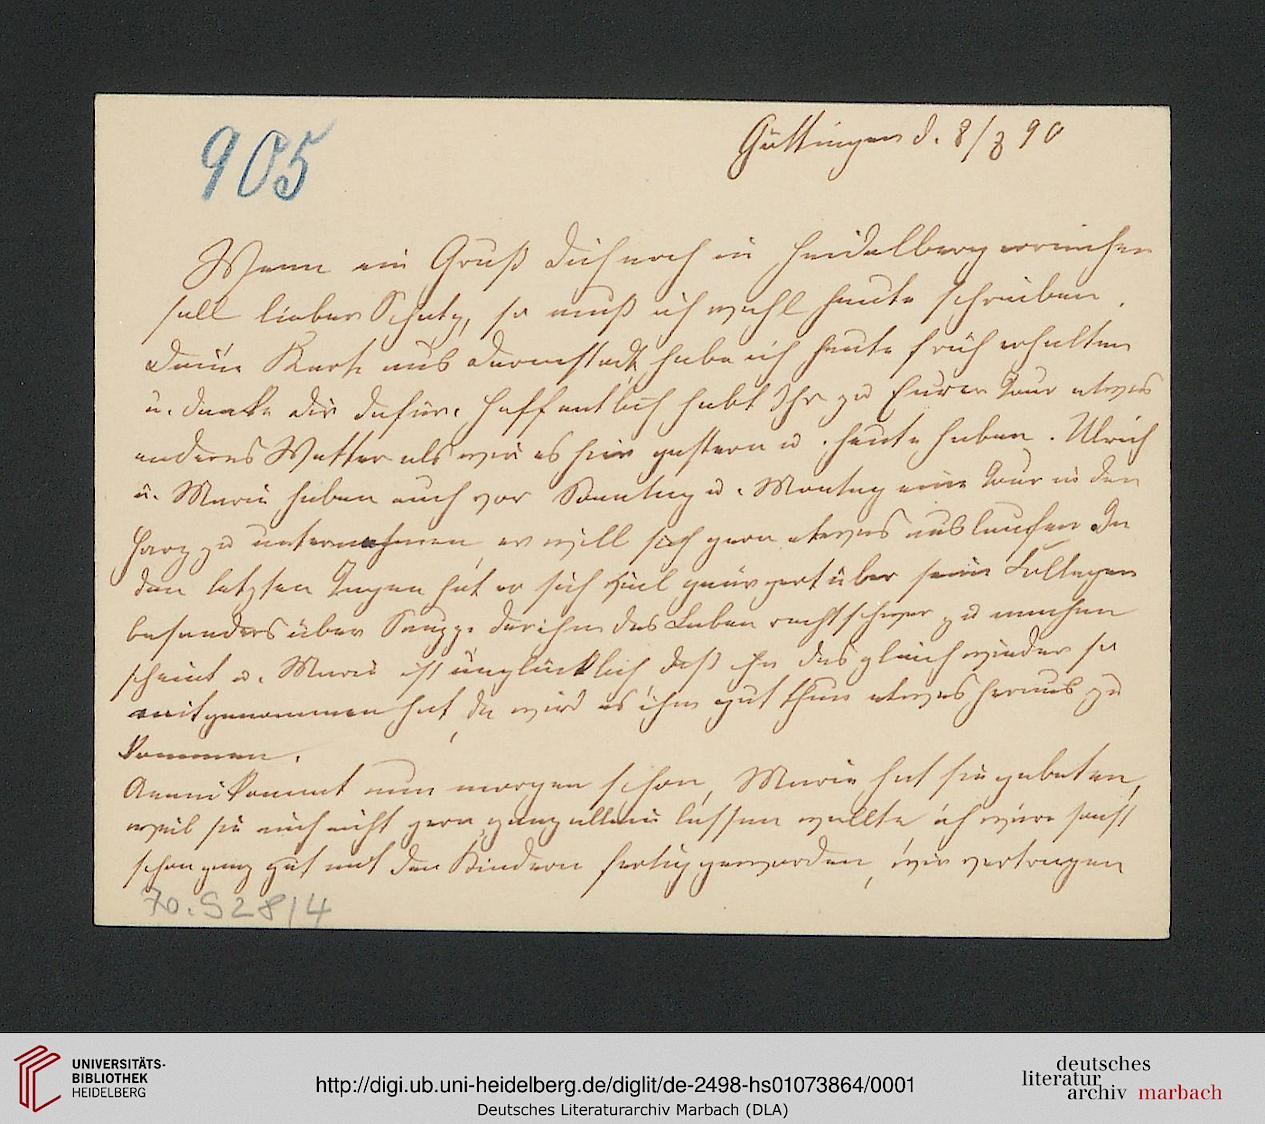 905
Göttingen d. 8/3 90
Wenn ein Gruß dich noch in Heidelberg erreichen
soll lieber Schatz, so muß ich wohl heute schreiben.
Deine Karte aus Darmstadt habe ich heute früh erhalten
u. danke dir dafür. Hoffentlich habt Ihr zu Eurer Tour etwas
anderes Wetter als wir es hier gestern u. heute haben. Ulrich
u. Marie haben auch vor Sonntag u. Montag eine Tour in den
Harz zu unternehmen, er will sich gern etwas auslaufen. In
den letzten Tagen hat er sich viel geärgert über seine Collegen
besonders über Sauppe der ihm das Leben recht schwer zu machen
scheint u. Marie ist unglücklich daß ihn das gleich wieder so
mitgenommen hat, da wird es ihm gut thun etwas heraus zu
kommen.
Anni kommt nun morgen schon, Marie hat sie gebeten,
weil sie mich nicht gern ganz allein lassen wollte, ich wäre sonst
schon ganz gut mit den Kindern fertig geworden, wir vertragen
70.S28/4
UNIVERSITÄTS-
BIBLIOTHEK
HEIDELBERG
http://digi.ub.uni-heidelberg.de/diglit/de-2498-hs01073864/0001
Deutsches Literaturarchiv Marbach (DLA)
deutsches
literatur
archiv marbach